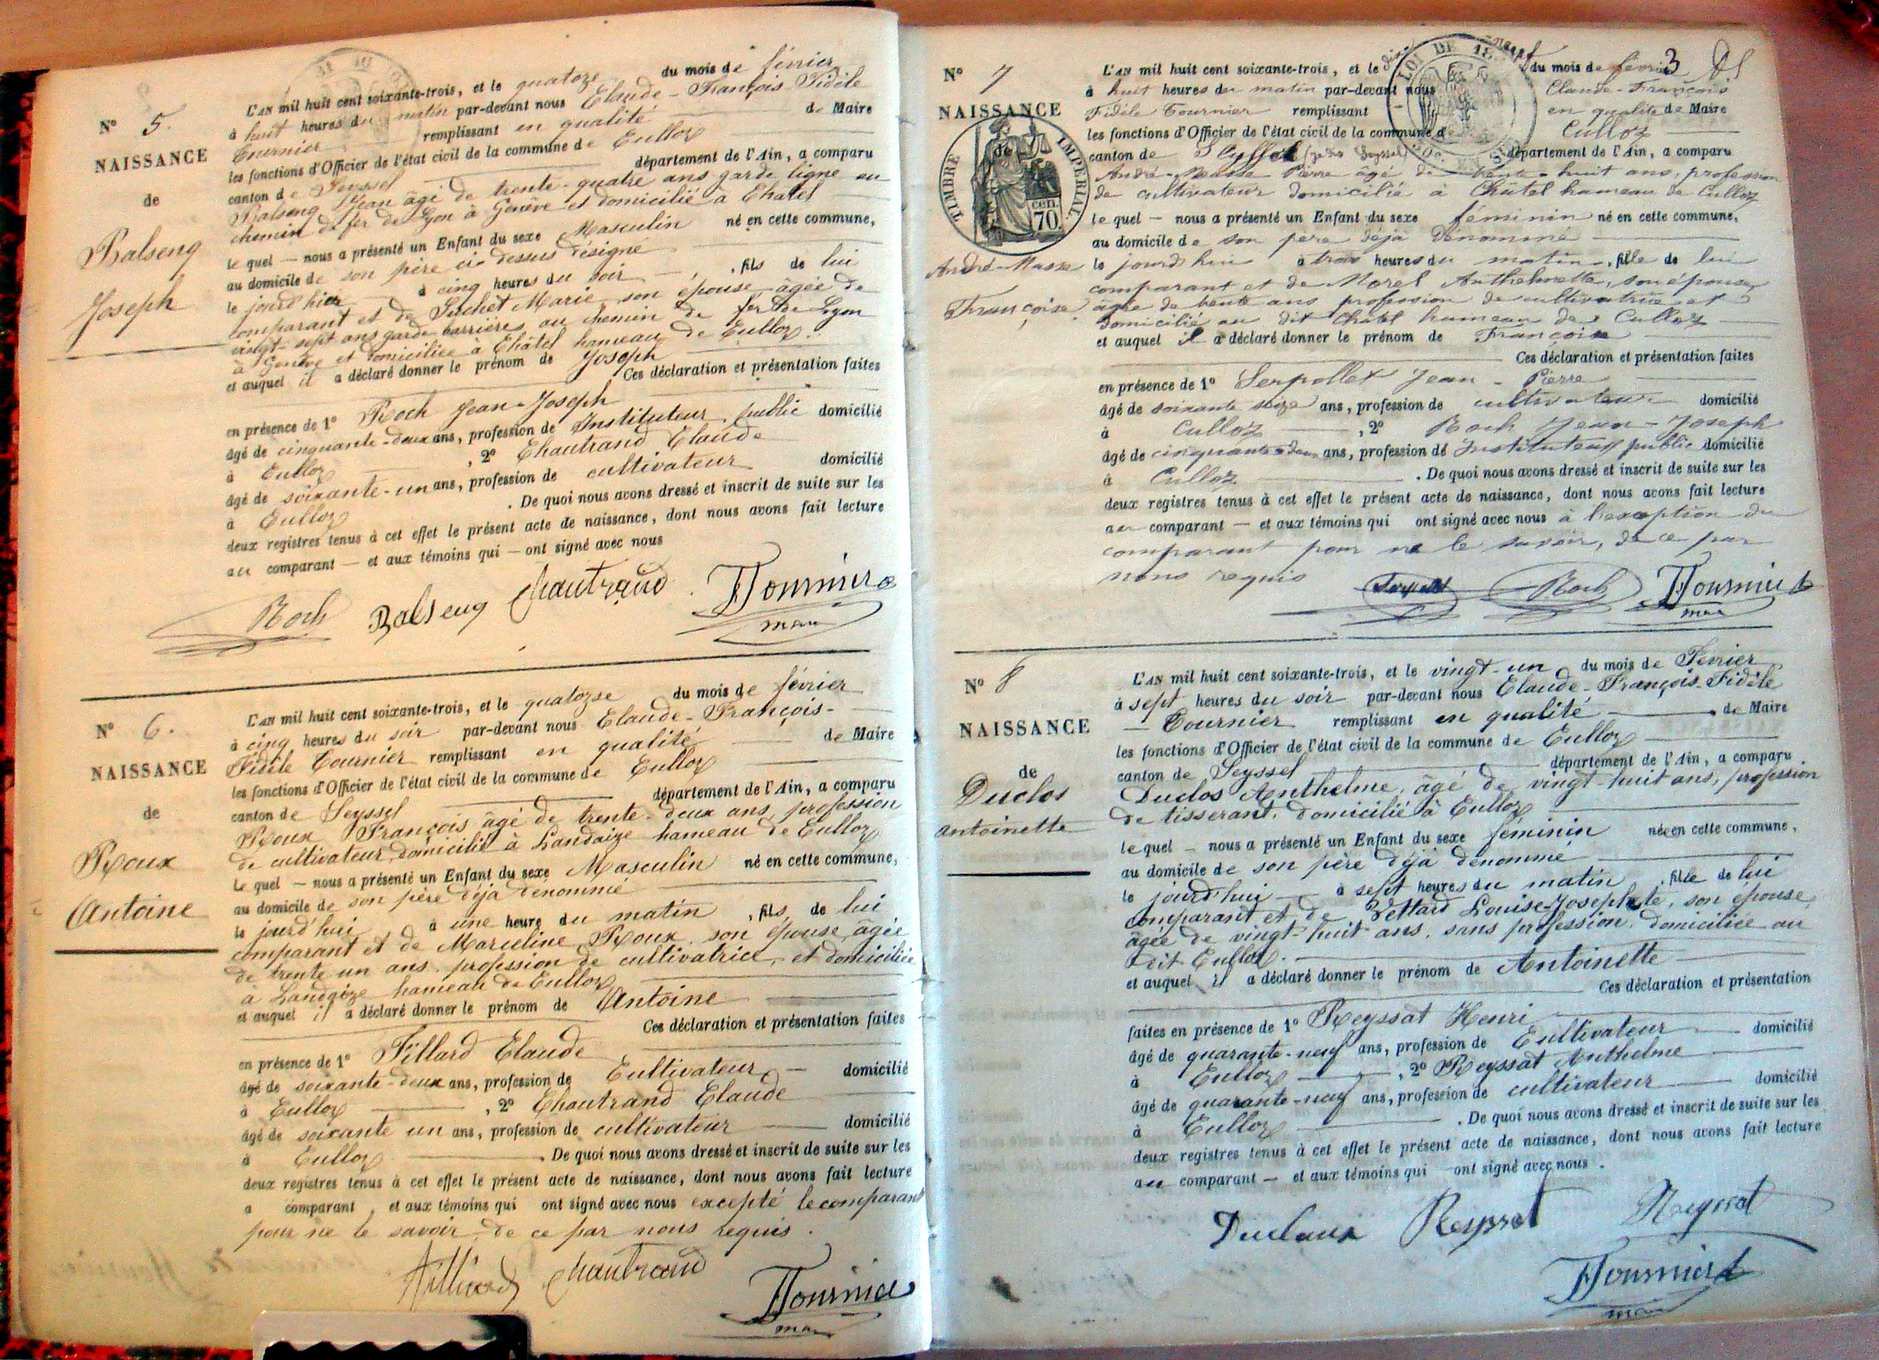 N° 5.
NAISSANCE
de
Balseng
Joseph
L'AN mil huit cent soixante-trois, et le quatorze du mois de février
à huit heures du matin par-devant nous Claude-François Fidèle
Tournier remplissant en qualité de Maire
les fonctions d'Officier de l'état civil de la commune de Culloz
canton de Seyssel département de l'Ain, a comparu
Balseng Jean âgé de trente-quatre ans garde ligne au
chemin de fer de Lyon à Genève et domicilié à Châtel
lequel — nous a présenté un Enfant du sexe Masculin né en cette commune,
au domicile de son père ci dessus désigné
le jourd'hier à cinq heures du soir, fils de lui
comparant et de Suchet Marie son épouse âgée de
vingt-sept ans garde barrière au chemin de fer de Lyon
à Genève et domiciliée à Châtel hameau de Culloz.
et auquel il a déclaré donner le prénom de Joseph
Ces déclaration et présentation faites
en présence de 1° Roch Jean-Joseph
âgé de cinquante-deux ans, profession de Instituteur public domicilié
à Culloz, 2° Chautrand Claude
âgé de soixante-un ans, profession de cultivateur domicilié
à Culloz. De quoi nous avons dressé et inscrit de suite sur les
deux registres tenus à cet effet le présent acte de naissance, dont nous avons fait lecture
au comparant — et aux témoins qui — ont signé avec nous
Roch Balseng Chautrand Tournier
maire
N° 6.
NAISSANCE
de
Roux
Antoine
L'AN mil huit cent soixante-trois, et le quatorze du mois de février
à cinq heures du soir par-devant nous Claude-François-
Fidèle Tournier remplissant en qualité de Maire
les fonctions d'Officier de l'état civil de la commune de Culloz
canton de Seyssel département de l'Ain, a comparu
Roux François âgé de trente-deux ans, profession
de cultivateur, domicilié à Landaize hameau de Culloz
lequel — nous a présenté un Enfant du sexe Masculin né en cette commune,
au domicile de son père déjà dénommé
le jourd'hui à une heure du matin, fils de lui
comparant et de Marceline Roux, son épouse, âgée
de trente un ans, profession de cultivatrice, et domiciliée
à Landaize hameau de Culloz
et auquel il a déclaré donner le prénom de Antoine
Ces déclaration et présentation faites
en présence de 1° Fillard Claude
âgé de soixante-deux ans, profession de Cultivateur — domicilié
à Culloz, 2° Chautrand Claude
âgé de soixante un ans, profession de cultivateur domicilié
à Culloz. De quoi nous avons dressé et inscrit de suite sur les
deux registres tenus à cet effet le présent acte de naissance, dont nous avons fait lecture
a comparant et aux témoins qui ont signé avec nous excepté le comparant
pour ne le savoir, de ce par nous requis.
Chautrand Tournier
maire
3
N° 7
NAISSANCE
de
TIMBRE IMPERIAL
70 cen.
André-Masse
Françoise
L'AN mil huit cent soixante-trois, et le du mois de février
à huit heures du matin par-devant nous Claude-François
Fidèle Tournier remplissant en qualité de Maire
les fonctions d'Officier de l'état civil de la commune de Culloz
canton de Seyssel département de l'Ain, a comparu
André-Masse Pierre âgé de trente-huit ans, profession
de cultivateur domicilié à Châtel hameau de Culloz
lequel — nous a présenté un Enfant du sexe féminin né en cette commune,
au domicile de son père déjà dénommé
le jourd'hui à trois heures du matin, fille de lui
comparant et de Morel Anthelmette, son épouse
âgée de trente ans profession de cultivatrice et
domiciliée au dit Châtel hameau de Culloz
et auquel il a déclaré donner le prénom de Françoise
Ces déclaration et présentation faites
en présence de 1° Serpollet Jean-Pierre
âgé de soixante seize ans, profession de cultivateur domicilié
à Culloz, 2° Roch Jean-Joseph
âgé de cinquante-deux ans, profession de Instituteur public domicilié
à Culloz. De quoi nous avons dressé et inscrit de suite sur les
deux registres tenus à cet effet le présent acte de naissance, dont nous avons fait lecture
au comparant — et aux témoins qui ont signé avec nous à l'exception du
comparant pour ne le savoir, de ce par
nous requis
Serpollet Roch Tournier
maire
N° 8
NAISSANCE
de
Duclos
Antoinette
L'AN mil huit cent soixante-trois, et le vingt-un du mois de Février
à sept heures du soir par-devant nous Claude-François-Fidèle
— Tournier remplissant en qualité de Maire
les fonctions d'Officier de l'état civil de la commune de Culloz
canton de Seyssel département de l'Ain, a comparu
Duclos Anthelme, âgé de vingt-huit ans, profession
de tisserant, domicilié à Culloz
lequel — nous a présenté un Enfant du sexe féminin née en cette commune,
au domicile de son père déjà dénommé
le jourd'hui à sept heures du matin, fille de lui
comparant et de Vettard Louise-Josephete, son épouse
âgée de vingt-huit ans, sans profession, domiciliée au
dit Culloz.
et auquel il a déclaré donner le prénom de Antoinette
Ces déclaration et présentation
faites en présence de 1° Reyssat Henri
âgé de quarante-neuf ans, profession de Cultivateur domicilié
à Culloz, 2° Reyssat Anthelme
âgé de quarante-neuf ans, profession de cultivateur domicilié
à Culloz. De quoi nous avons dressé et inscrit de suite sur les
deux registres tenus à cet effet le présent acte de naissance, dont nous avons fait lecture
au comparant — et aux témoins qui — ont signé avec nous.
Duclaux Reyssat Reyssat
Tournier
maire